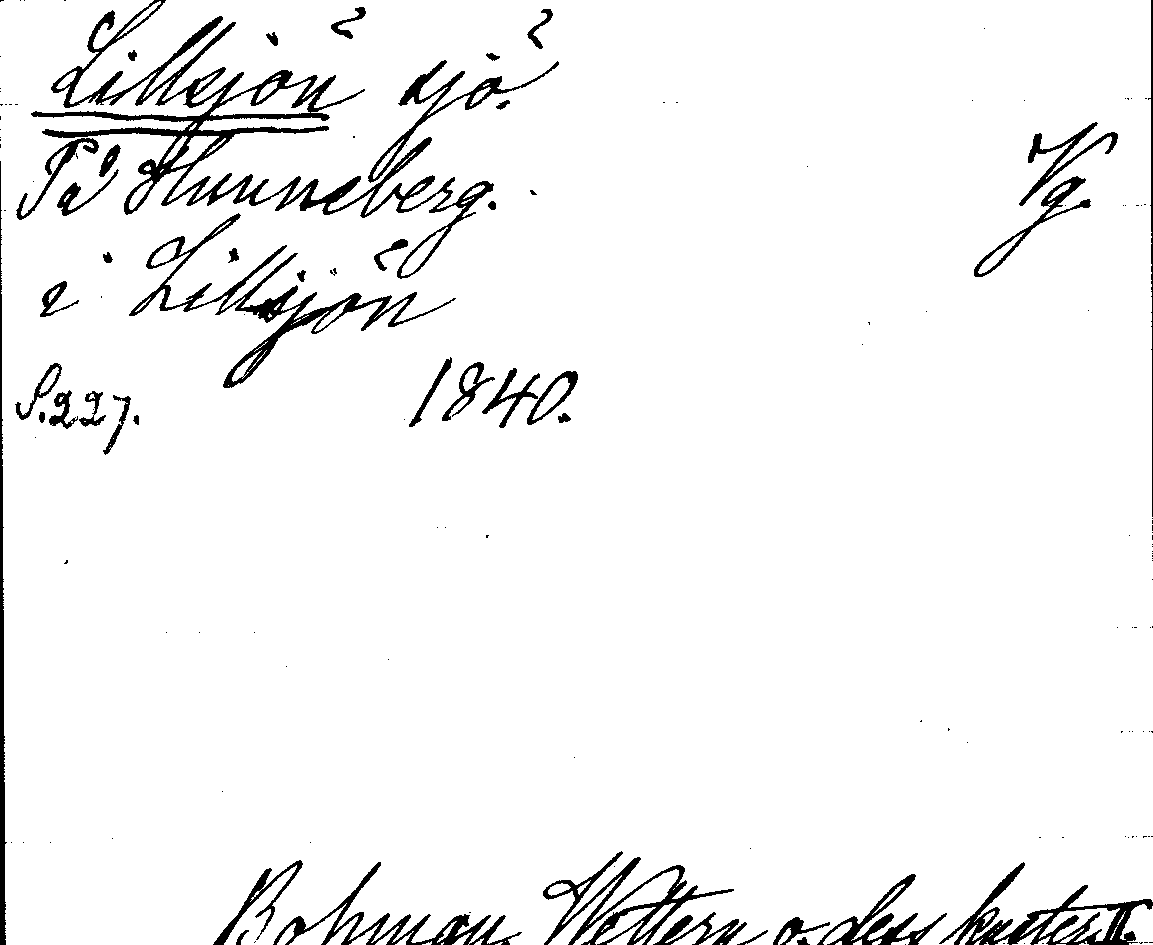 Lillsjön sjö.
På Hunneberg.
Vg.
i Lillsjön
S. 227. 1840.
Bohman, Wettern o. dess kuster II.